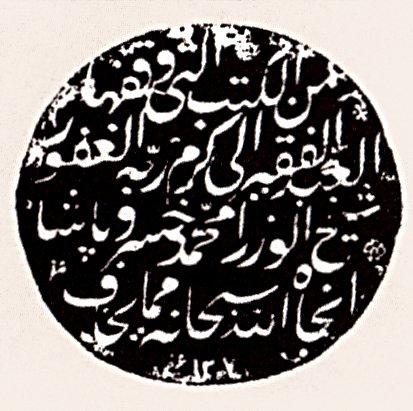 من الكتب التى وقفها
العبد الفقير الى كرم ربه الغفور
شيخ الوزرا محمد خسرو پاشا
انجاه الله سبحانه مما يخاف